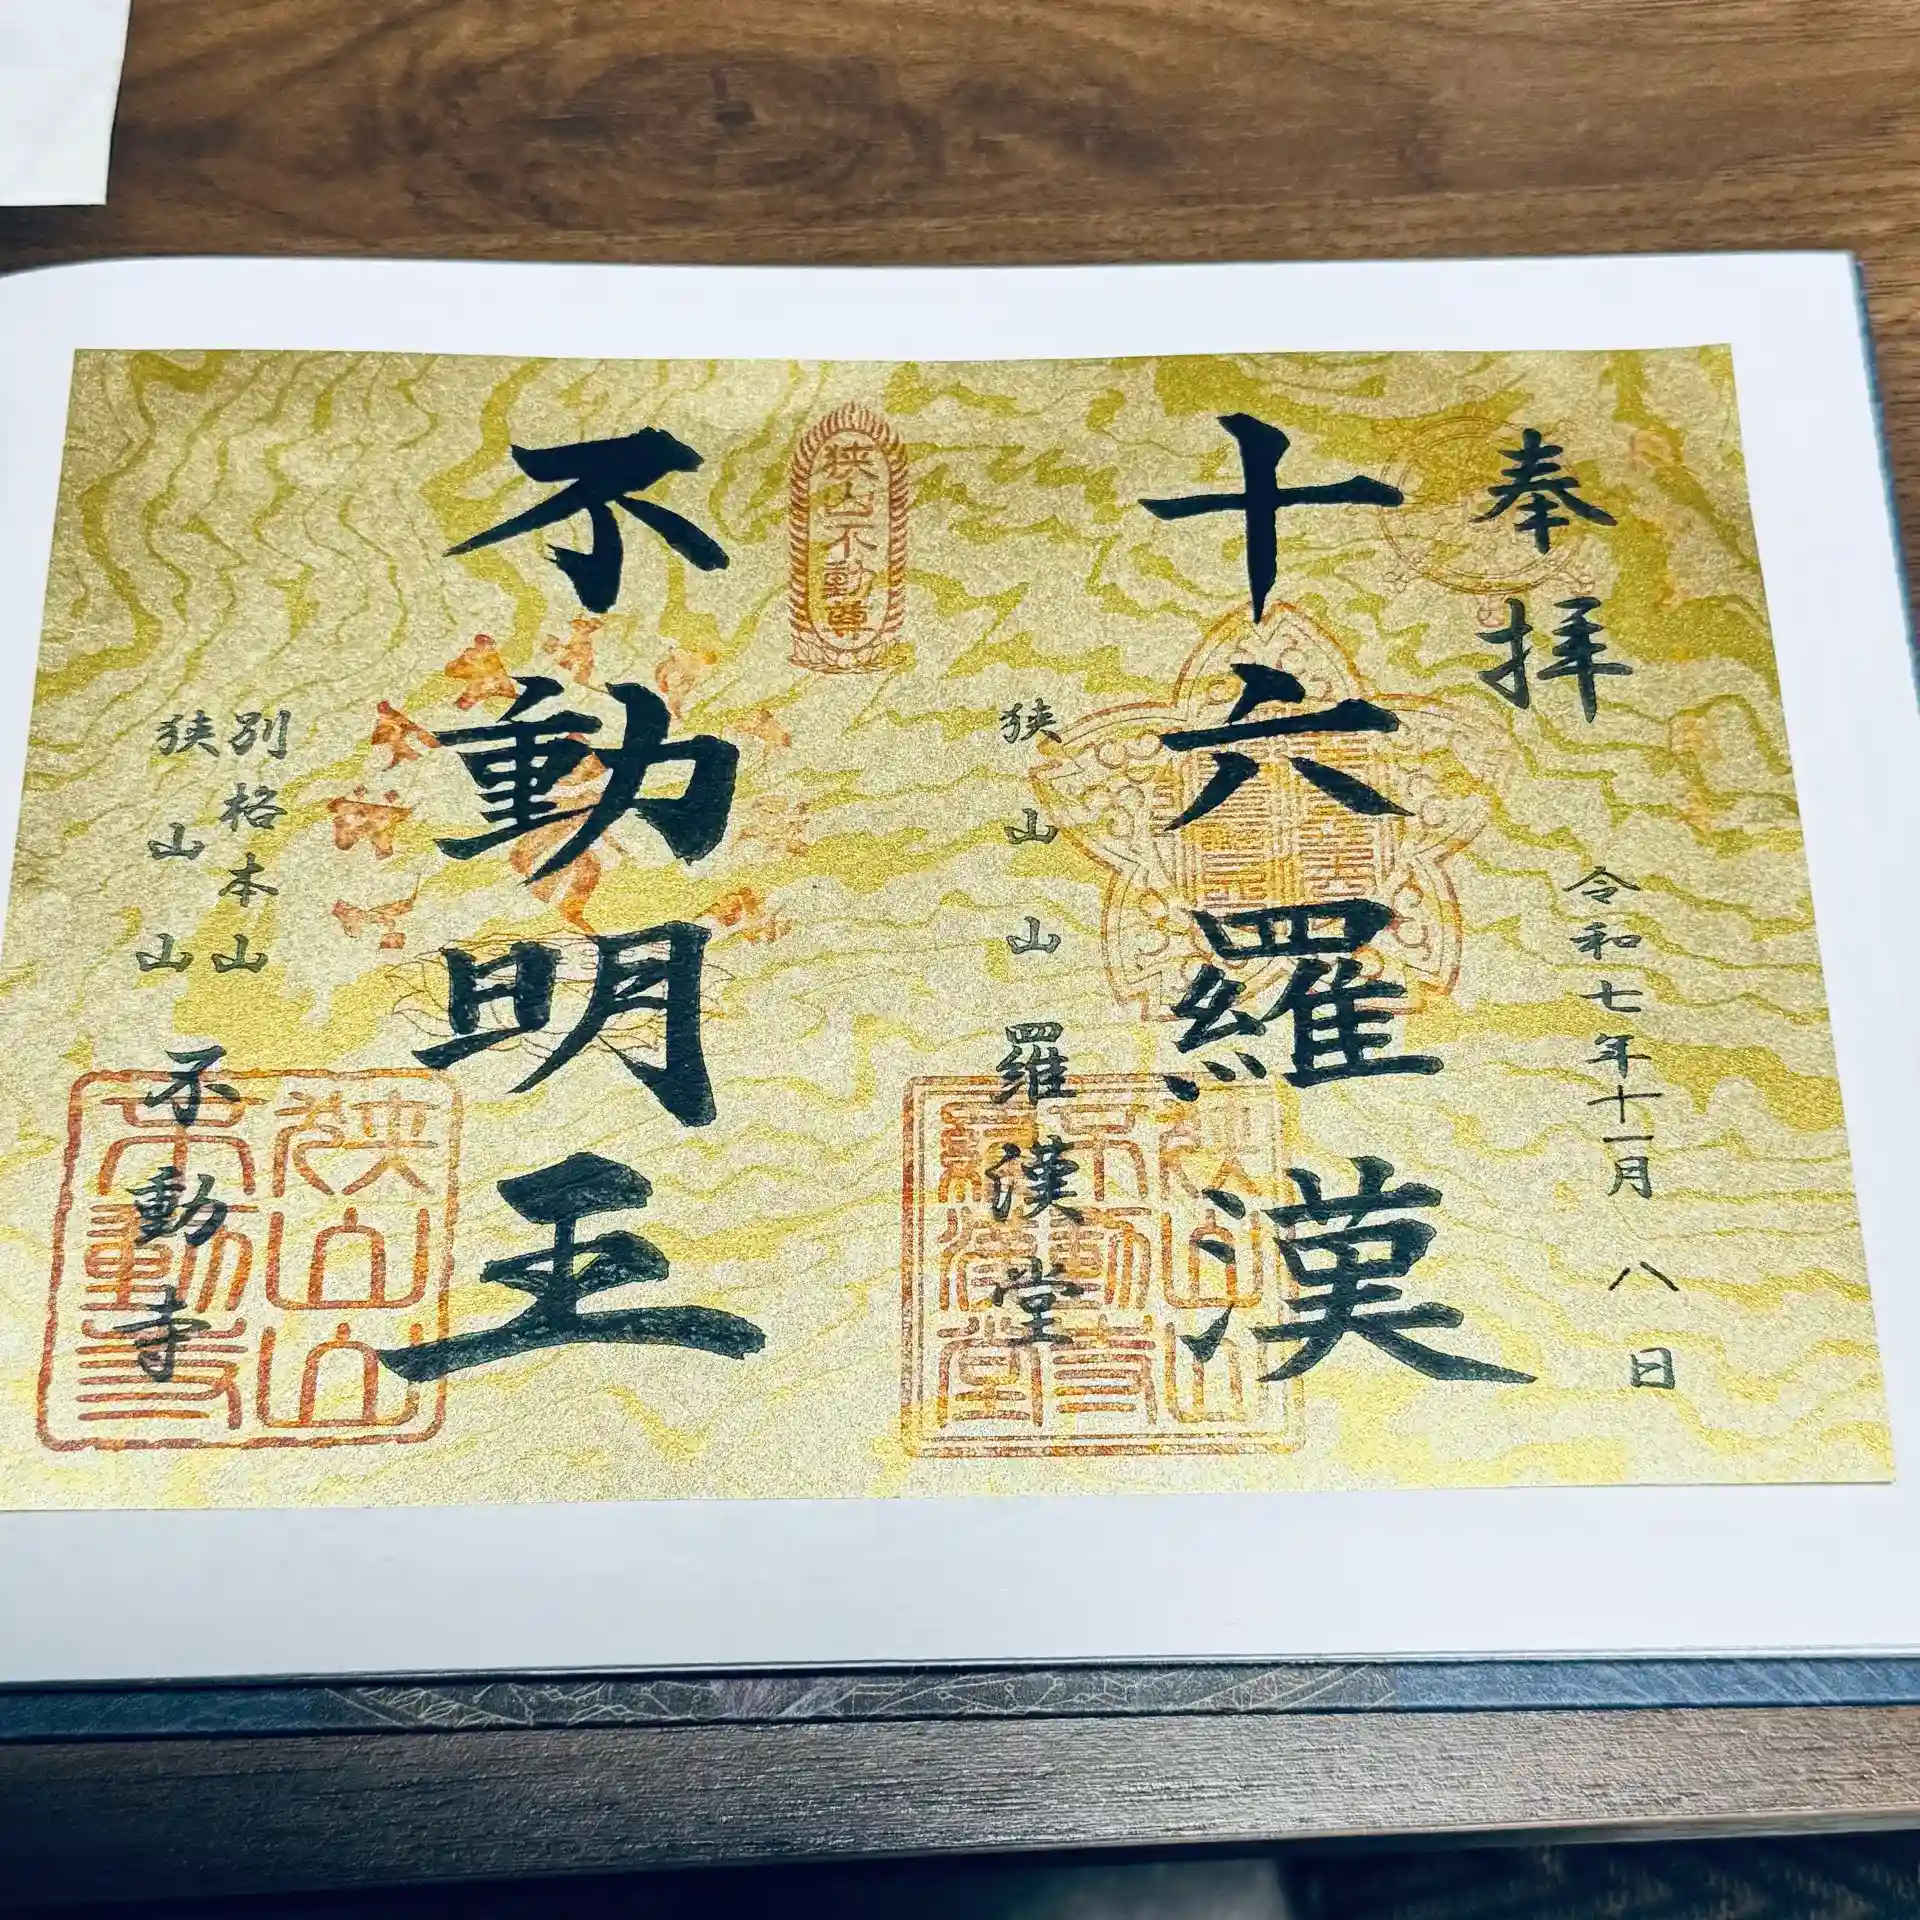 奉拝
令和七年十一月八日
十六羅漢
狭山山羅漢堂
狭山不動尊
不動明王
別格本山
狭山山不動寺
狭山山不動寺羅漢堂
狭山山不動寺